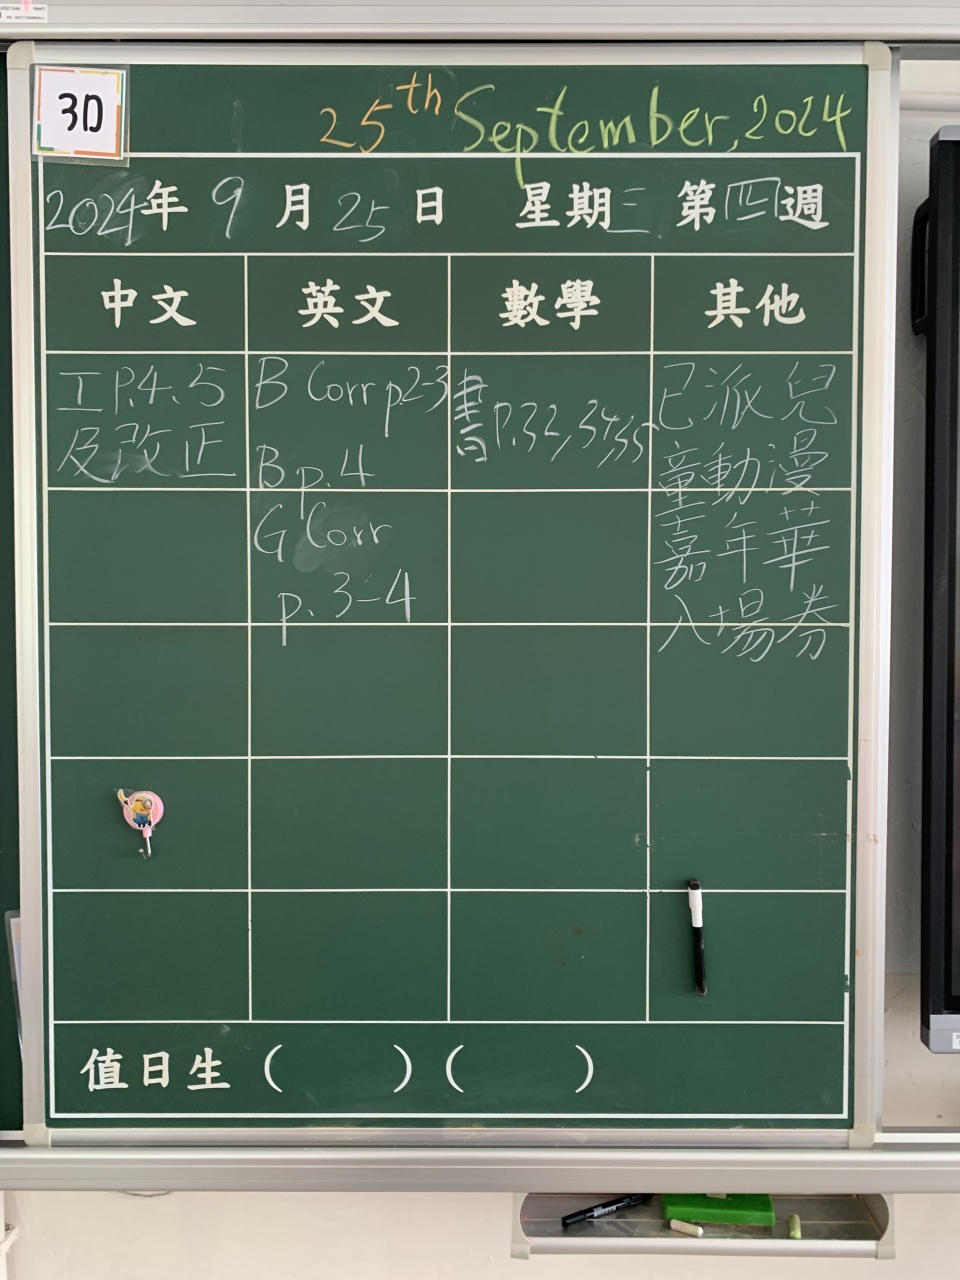 3D
25th September, 2024
2024年 9 月 25 日 星期三 第四週
中文 英文 數學 其他
工P.4、5
及改正
B Corr p.2-3
B p. 4
G Corr
p. 3-4
書P.32, 34, 35
已派兒
童動漫
嘉年華
入場券
值日生 ( ) ( )